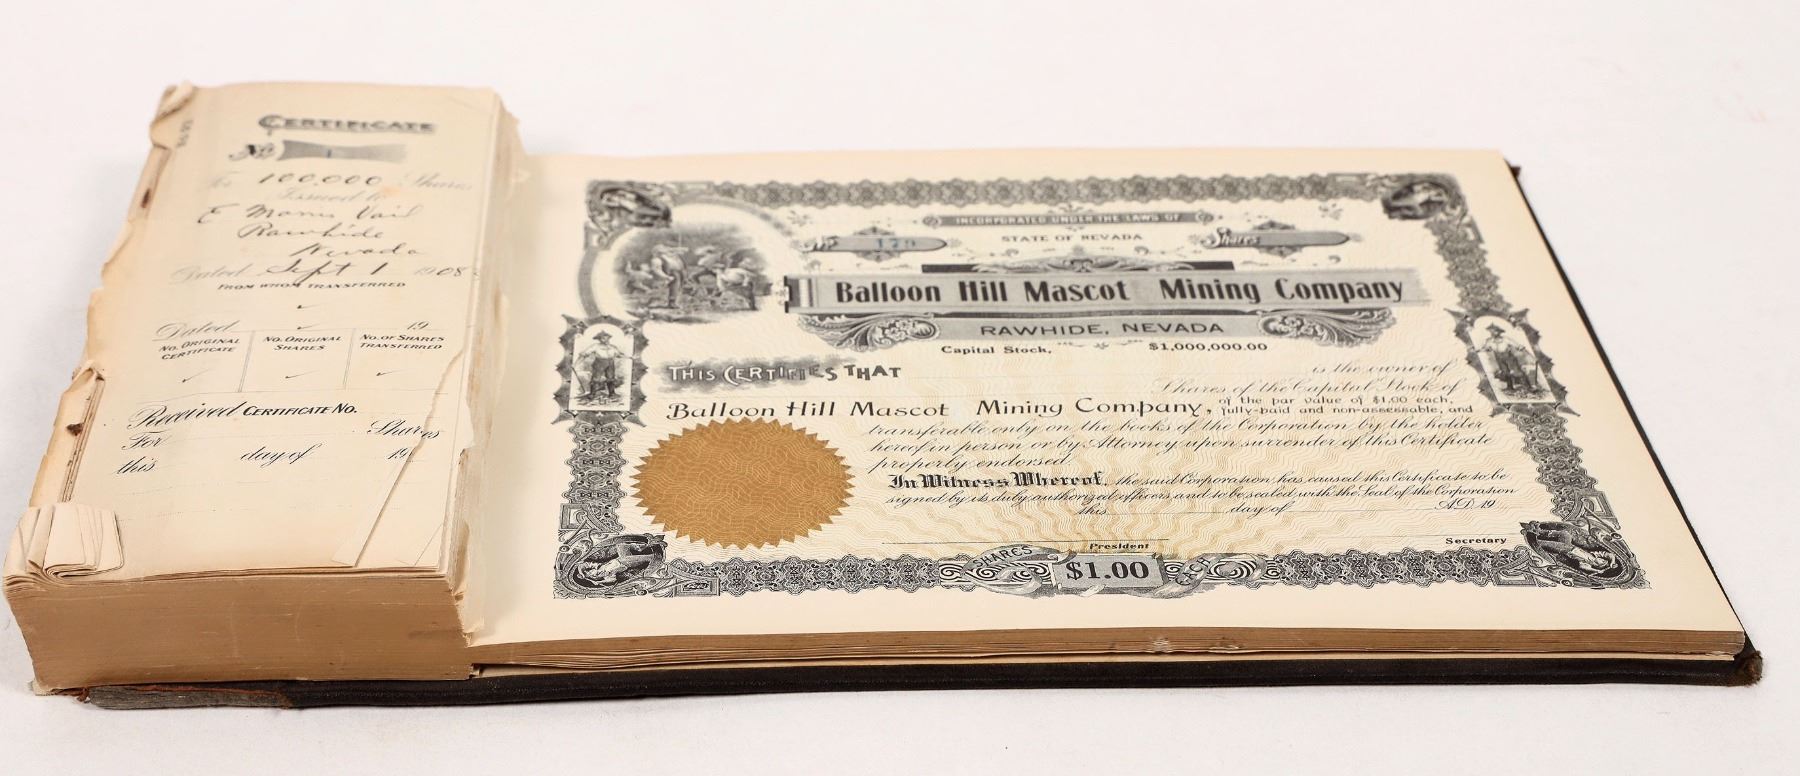 CERTIFICATE
No 1
For 100,000 Shares
Issued to
E Morris Vail
Rawhide
Nevada
Dated Sept 1 1908
FROM WHOM TRANSFERRED
Dated 19
NO. ORIGINAL CERTIFICATE
NO. ORIGINAL SHARES
NO. OF SHARES TRANSFERRED
Received CERTIFICATE NO.
For Shares
this day of 19
INCORPORATED UNDER THE LAWS OF
STATE OF NEVADA
No 179
Shares
Balloon Hill Mascot Mining Company
RAWHIDE, NEVADA
Capital Stock, $1,000,000.00
THIS CERTIFIES THAT
is the owner of
Shares of the Capital Stock of
Balloon Hill Mascot Mining Company, of the par value of $1.00 each, fully-paid and non-assessable, and
transferable only on the books of the Corporation by the holder
hereof in person or by Attorney upon surrender of this Certificate
properly endorsed.
In Witness Whereof, the said Corporation has caused this Certificate to be
signed by its duly authorized officers and to be sealed with the Seal of the Corporation
this day of A.D. 19
President
Secretary
SHARES $1.00 EACH